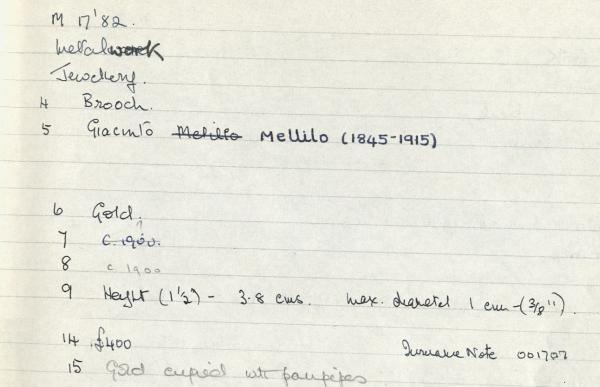 M 17'82.
Metalwork
Jewellery.
4 Brooch.
5 Giacinto Melillo Mellilo (1845-1915)
6 Gold.
7 c. 1900.
8 c 1900
9 Height (1½") - 3.8 cms. max. diameter 1 cm - (3/8").
14 £400 Insurance Note 001707
15 Gold cupid with panpipes